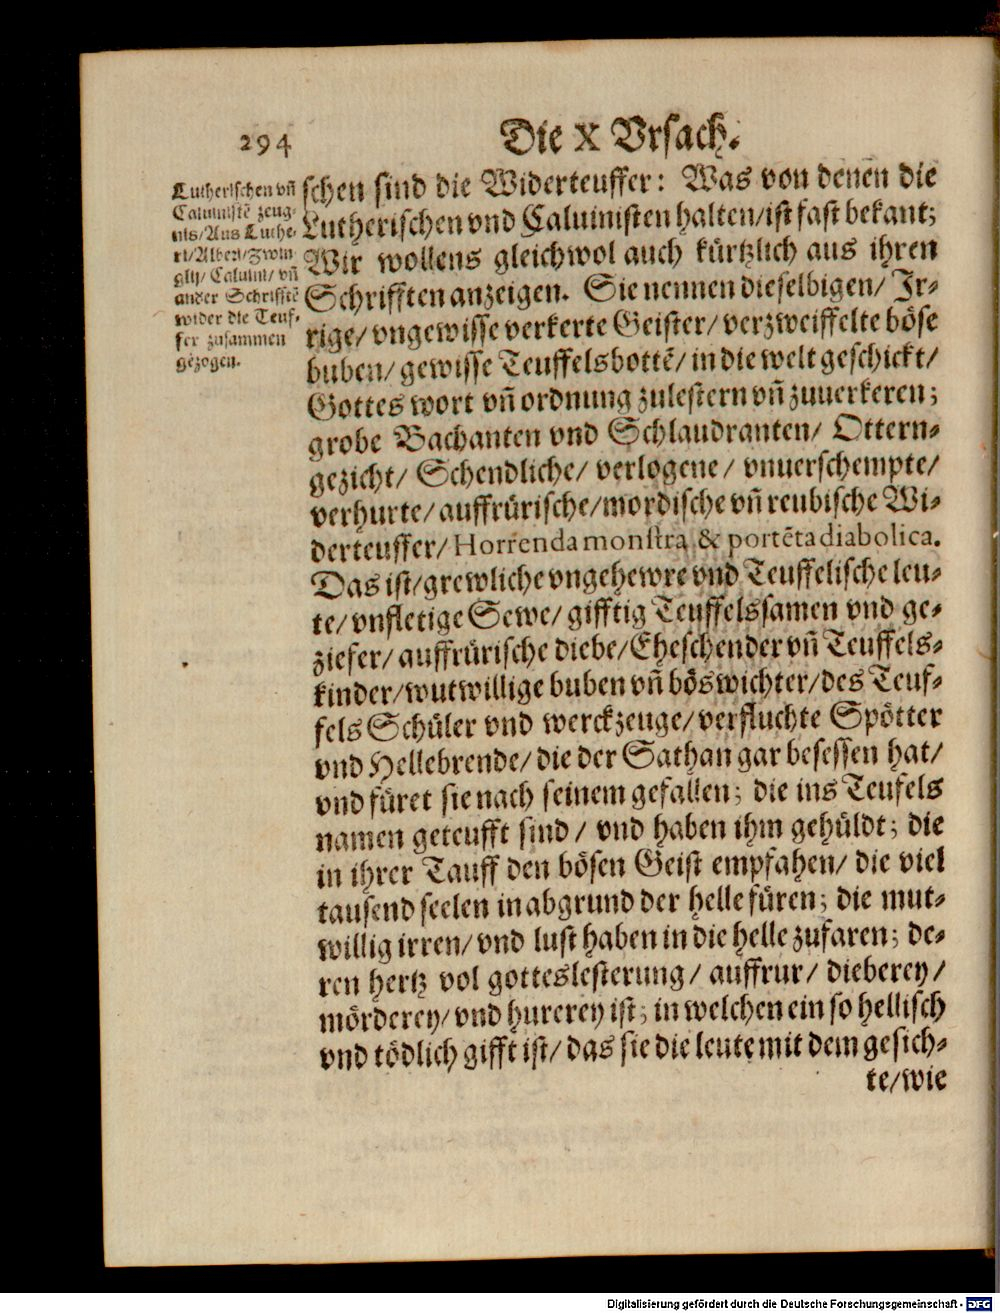 294
Die X Vrsach.
Lutherischen vñ
Caluinistẽ zeug-
nis/Aus Luthe-
ri/Alberi/Zwin
glij/Caluini/vñ
ander Schrifftẽ
wider die Teuf-
fer zusammen
gezogen.
schen sind die Widerteuffer: Was von denen die
Lutherischen vnd Caluinisten halten/ist fast bekant;
Wir wollens gleichwol auch kürtzlich aus ihren
Schrifften anzeigen. Sie nennen dieselbigen/ Jr-
rige/ vngewisse verkerte Geister/ verzweiffelte böse
buben/ gewisse Teuffelsbottẽ/ in die welt geschickt/
Gottes wort vñ ordnung zulestern vñ zuuerkeren;
grobe Bachanten vnd Schlaudranten/ Ottern-
gezicht/ Schendliche/ verlogene/ vnuerschempte/
verhurte/ auffrürische/ mordische vñ reubische Wi-
derteuffer/ Horrenda monstra & portẽta diabolica.
Das ist/ grewliche vngehewre vnd Teuffelische leu-
te/ vnfletige Sewe/ gifftig Teuffelssamen vnd ge-
ziefer/ auffrürische diebe/ Eheschender vñ Teuffels-
kinder/ wutwillige buben vñ böswichter/ des Teuf-
fels Schüler vnd werckzeuge/ verfluchte Spötter
vnd Hellebrende/ die der Sathan gar besessen hat/
vnd füret sie nach seinem gefallen; die ins Teufels
namen geteufft sind/ vnd haben ihm gehüldt; die
in ihrer Tauff den bösen Geist empfahen/ die viel
tausend seelen in abgrund der helle füren; die mut-
willig irren/ vnd lust haben in die helle zufaren; de-
ren hertz vol gotteslesterung/ auffrur/ dieberey/
mörderey/ vnd hurerey ist; in welchen ein so hellisch
vnd tödlich gifft ist/ das sie die leute mit dem gesich-
te/wie
Digitalisierung gefördert durch die Deutsche Forschungsgemeinschaft - DFG